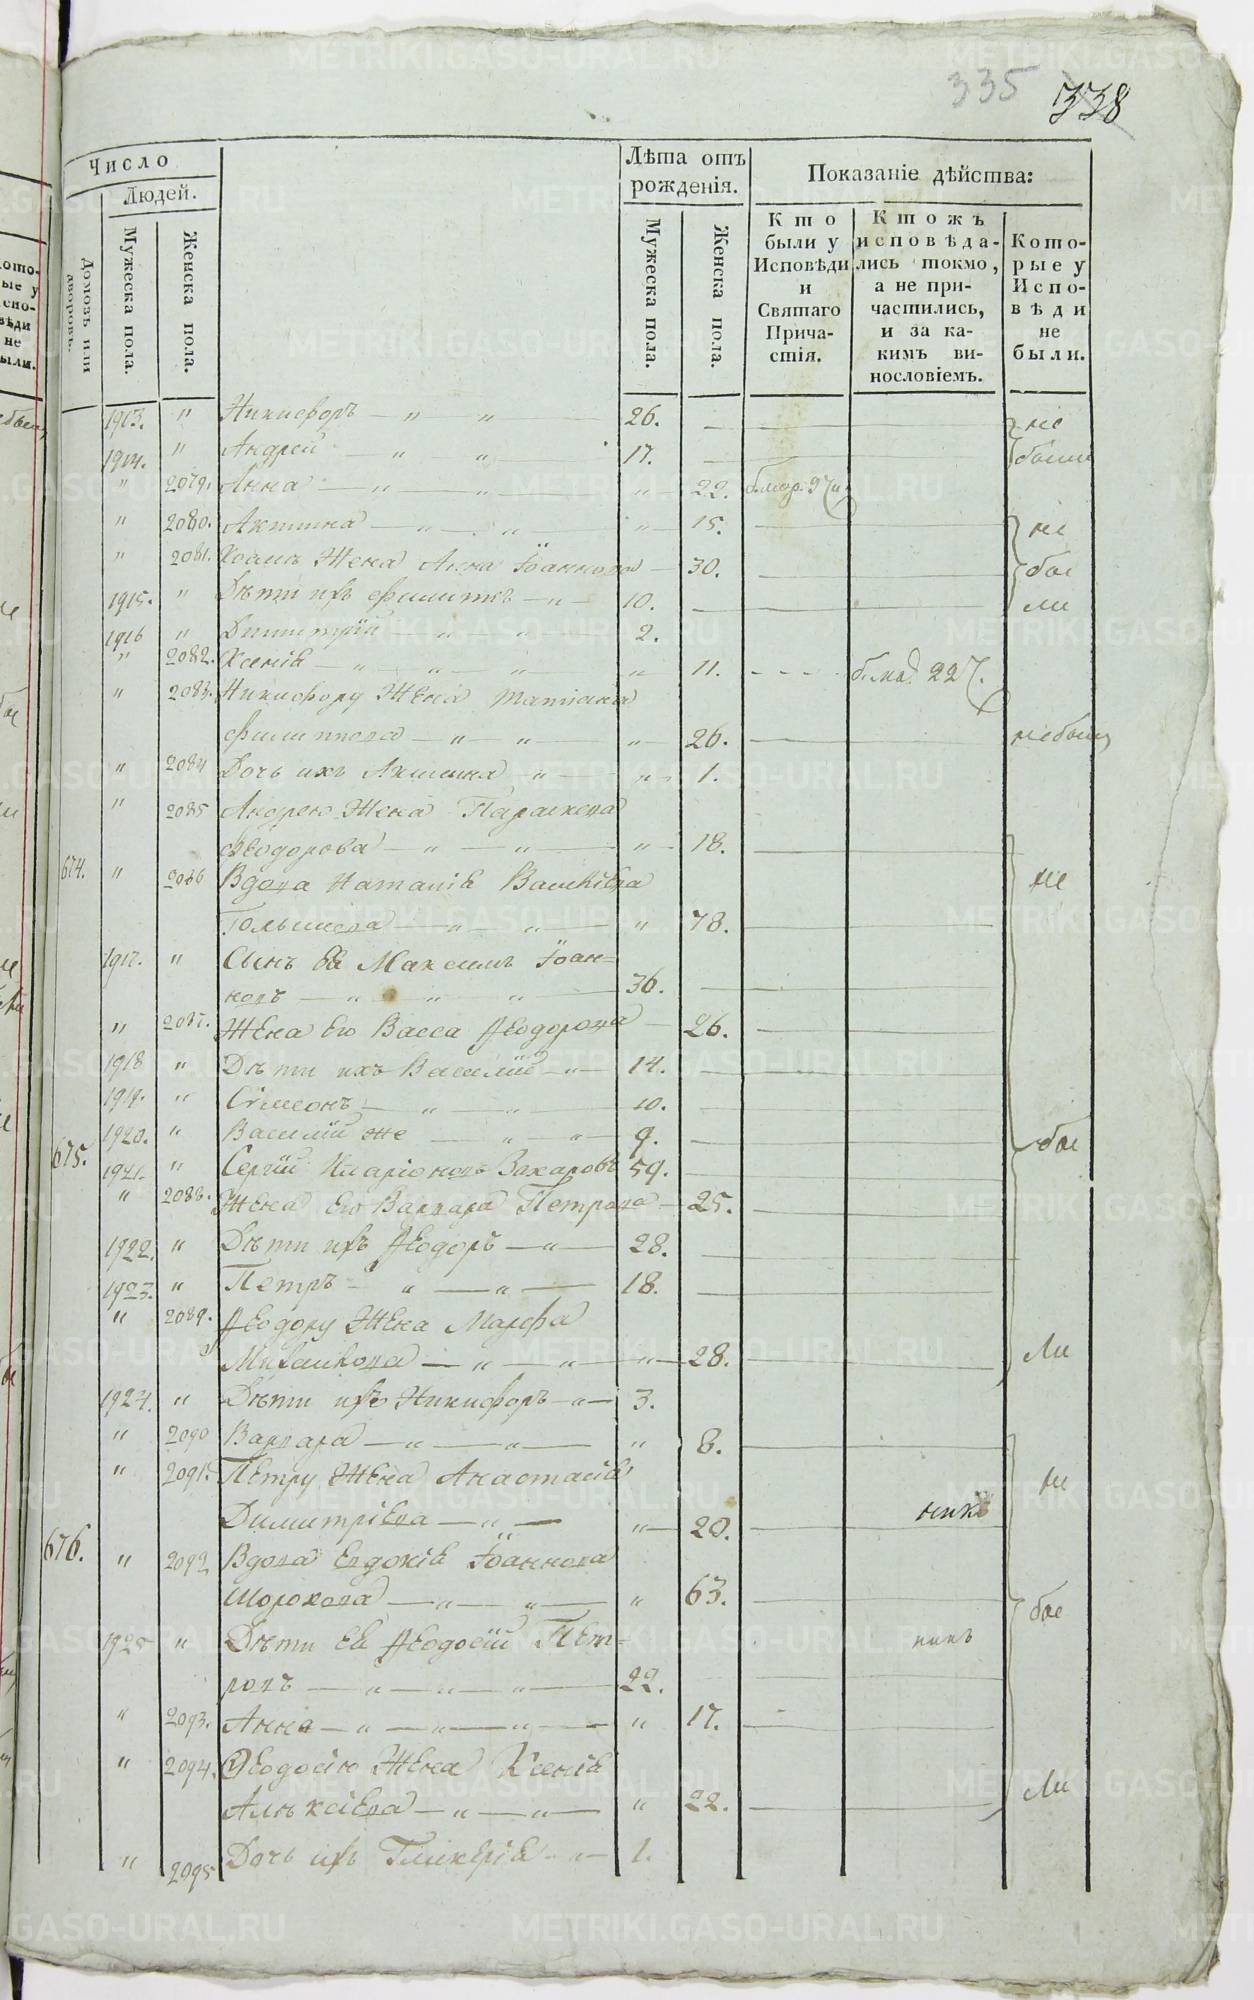 335 338
Число
Людей.
Домовъ или дворовъ.
Мужеска пола.
Женска пола.
Лѣта отъ рожденія.
Мужеска пола.
Женска пола.
Показаніе дѣйства:
Кто были у Исповѣди и Святаго Причастія.
Ктожъ исповѣда-лись токмо, а не при-частились, и за ка-кимъ ви-нословіемъ.
Кото-рые у Испо-вѣди не были.
1913. " Никифоръ — " — " — 26. не
1914. " Андрей — " — " — 17. были
" 2079. Анна — " — " — " 22.
" 2080. Акилина — " — " — " 15. не
" 2081. Жена Анна Іоаннова — 30. бы
1915. " Дѣти ихъ Филиппъ — " — 10. ли
1916 " Димитрій — " — " — 2.
" 2082. Ксенія — " — " — " — " 11. 22
" 2083. Никифору Жена Татіана
Филиппова — " — " — " 26. небыли
" 2084 Дочь ихъ Акилина " — " 1.
" 2085 Андрею Жена Параскева
Ѳеодорова — " — " — " 18.
674. " 2086 Вдова Наталія Василіева не
Голышева — " — " — " 78.
1917. " Сынъ Ея Максимъ Іоан=
новъ — " — " — " — 36.
" 2087. Жена Его Васса Ѳеодорова — 26.
1918 " Дѣти ихъ Василій — " — 14.
1919. " Сѵмеонъ — " — " — 10.
1920. " Василій же — " — " — 9. бы
675. 1921. " Сергій Иларіоновъ Захаровъ 59.
" 2088. Жена Его Варвара Петрова — 25.
1922. " Дѣти ихъ Ѳеодоръ — " — 28.
1923. " Петръ — " — " — 18.
" 2089. Ѳеодору Жена Марфа
Михайлова — " — " — " — 28. ли
1924. " Дѣти ихъ Никифоръ — " — 3.
" 2090 Варвара — " — " — " 8.
" 2091. Петру Жена Анастасія не
Димитріева — " — " — 20.
676. " 2092 Вдова Евдокія Іоаннова
Шорохова — " — " — " 63. бы
1925 " Дѣти Ея Ѳеодосій Пет=
ровъ — " — " — " — 22.
" 2093. Анна — " — " — " — " 17.
" 2094. Ѳеодосію Жена Ксенія
Алексіева — " — " — " 22. ли
" 2095 Дочь ихъ Гликерія — " — 1.
METRIKI.GASO-URAL.RU